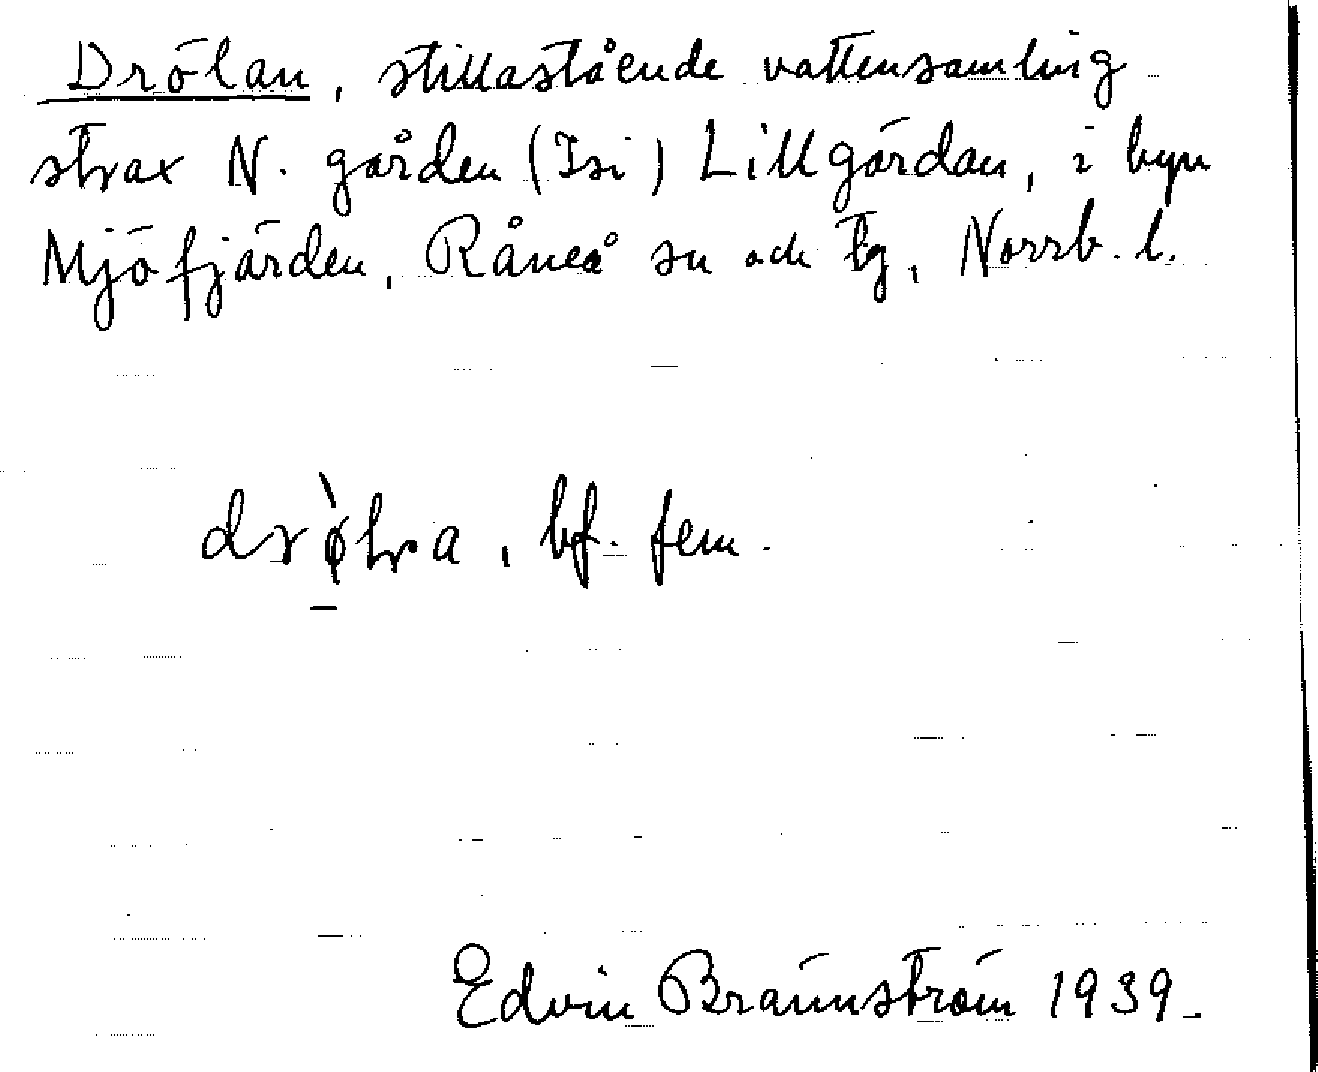 Drölan, stillastående vattensamling
strax N. gården (Isi) Lillgårdan, i byn
Mjöfjärden, Råneå sn och tg, Norrb. l.
bf. fem.
Edvin Brännström 1939.